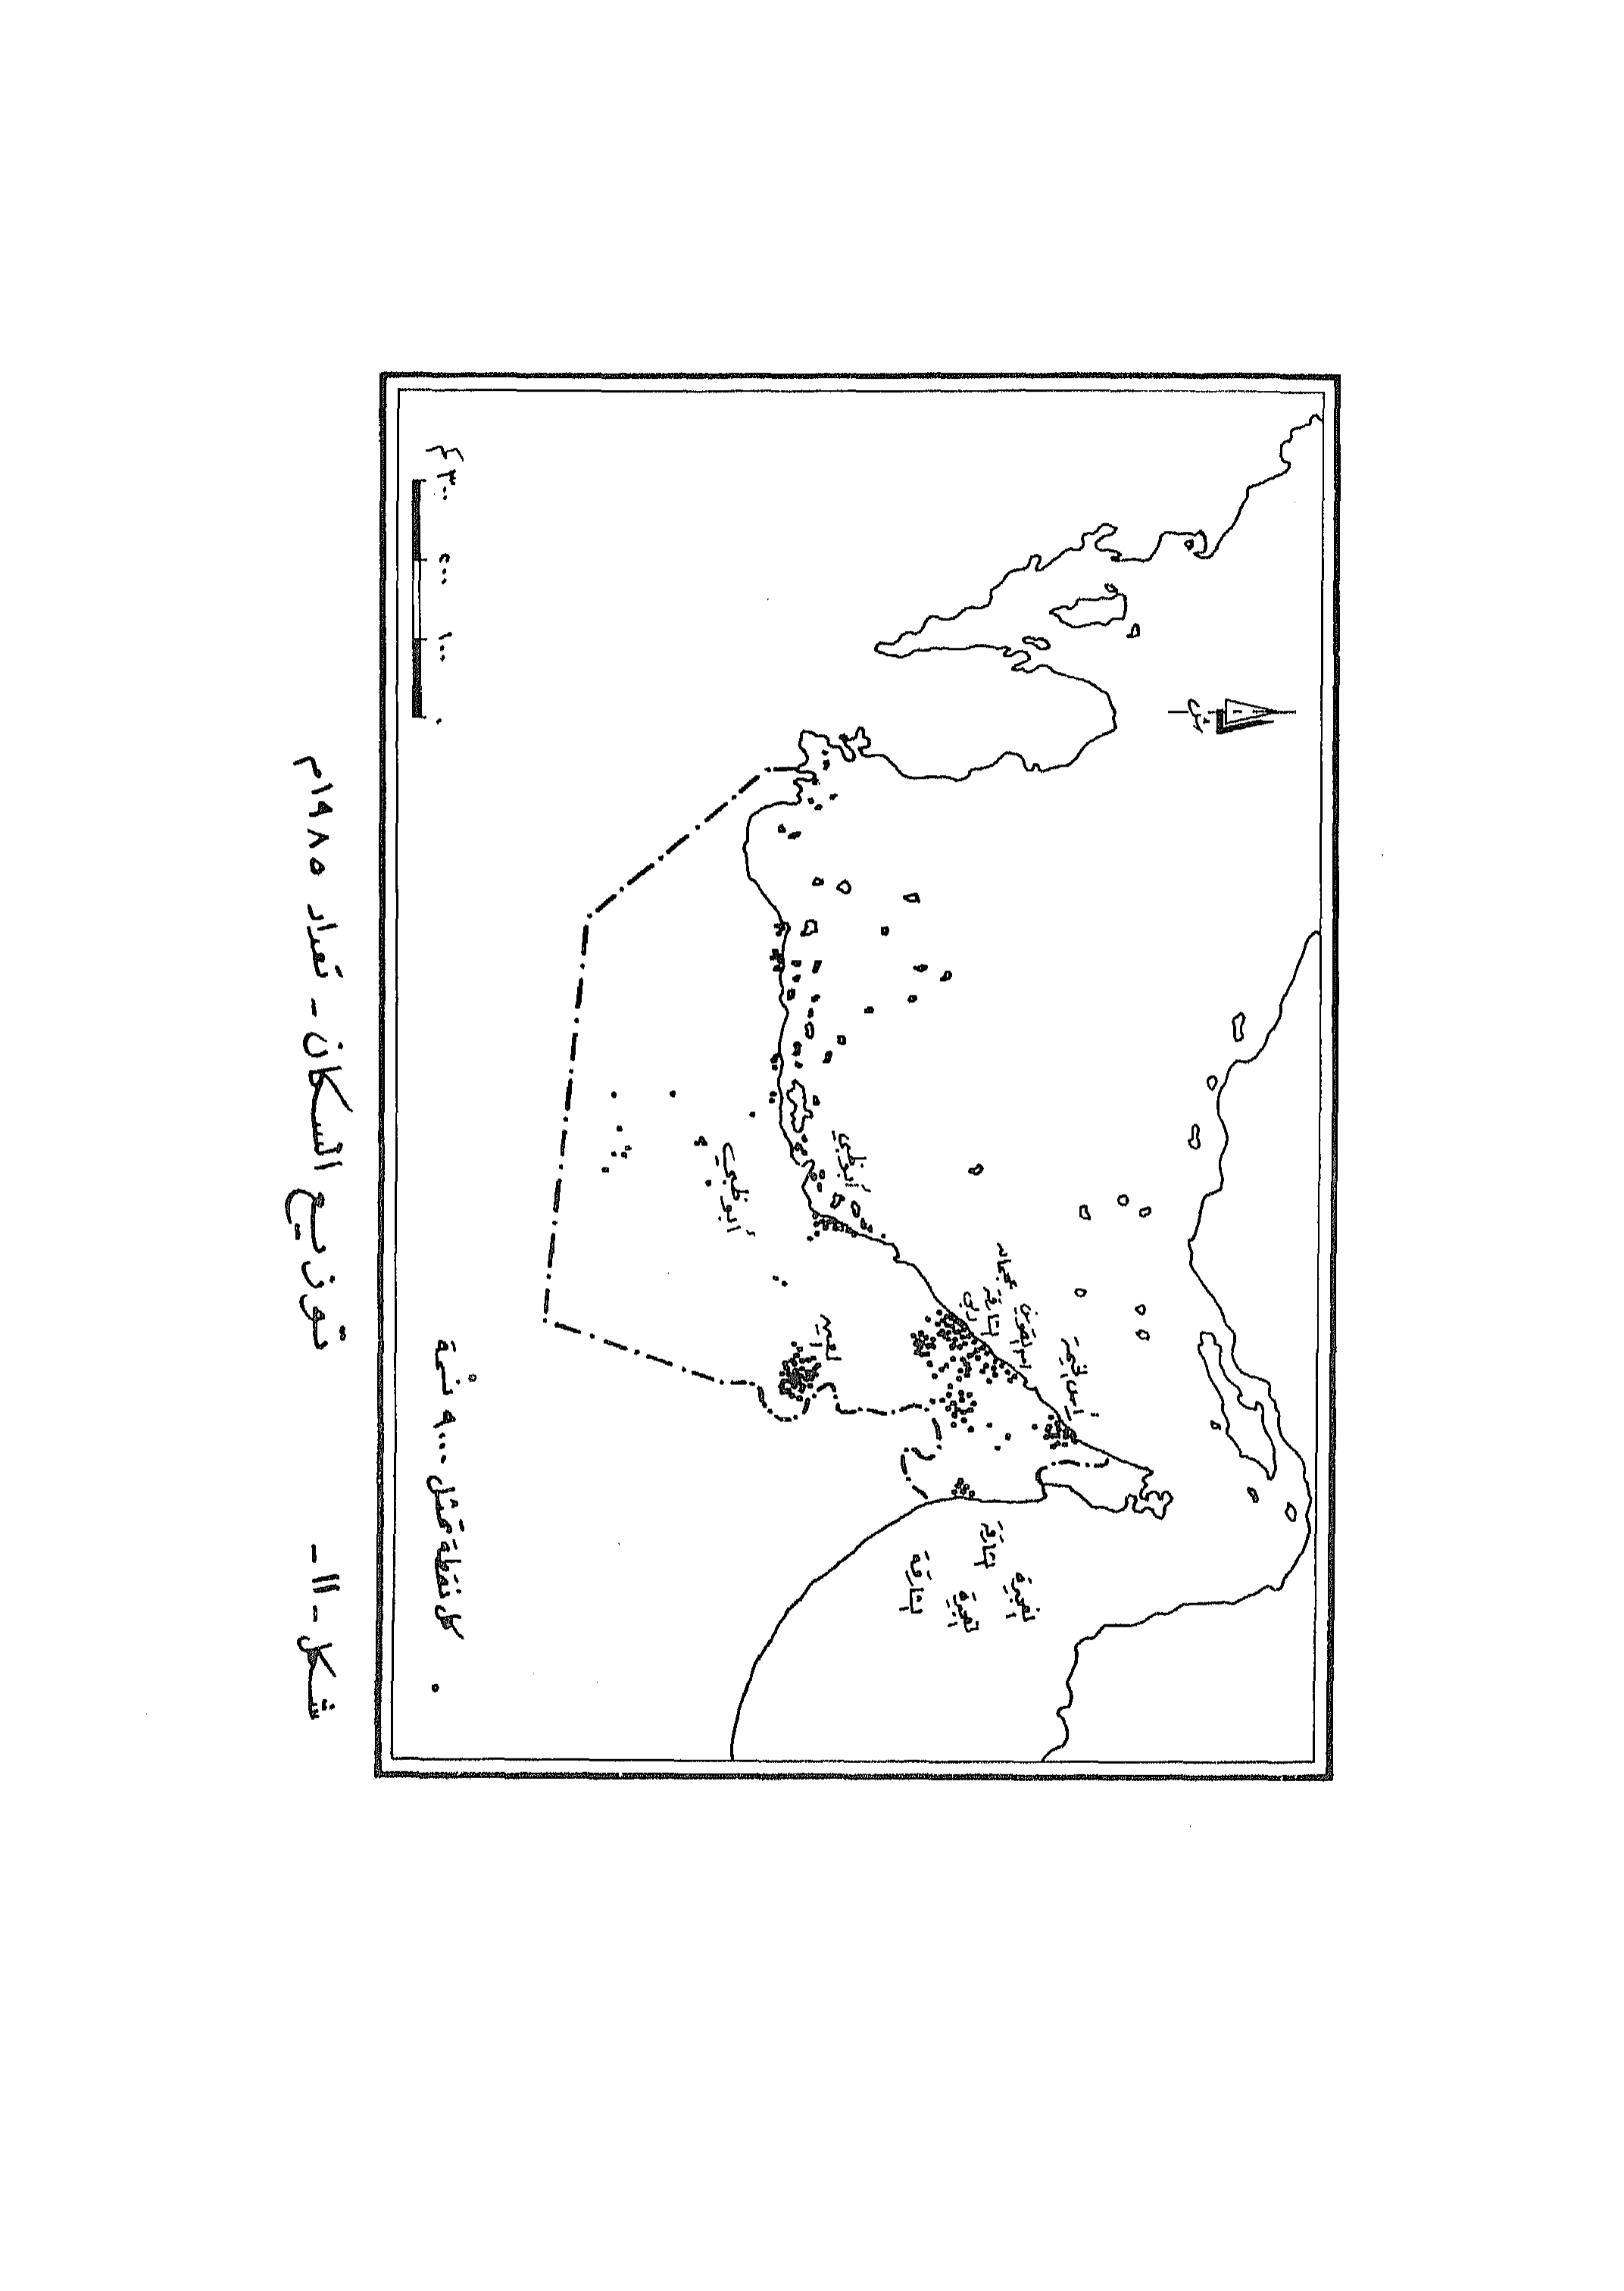 رأس الخيمة
أم القوين
عجمان
الشارقة
دبي
الفجيرة
الشارقة
الفجيرة
الشارقة
أبوظبي
العين
أبوظبي
• كل نقطة تمثل ٩٠٠٠ نسمة
٠ ١٠٠ ٢٠٠ ٣٠٠ كم
شكل -١١- توزيع السكان - تعداد ١٩٨٥م